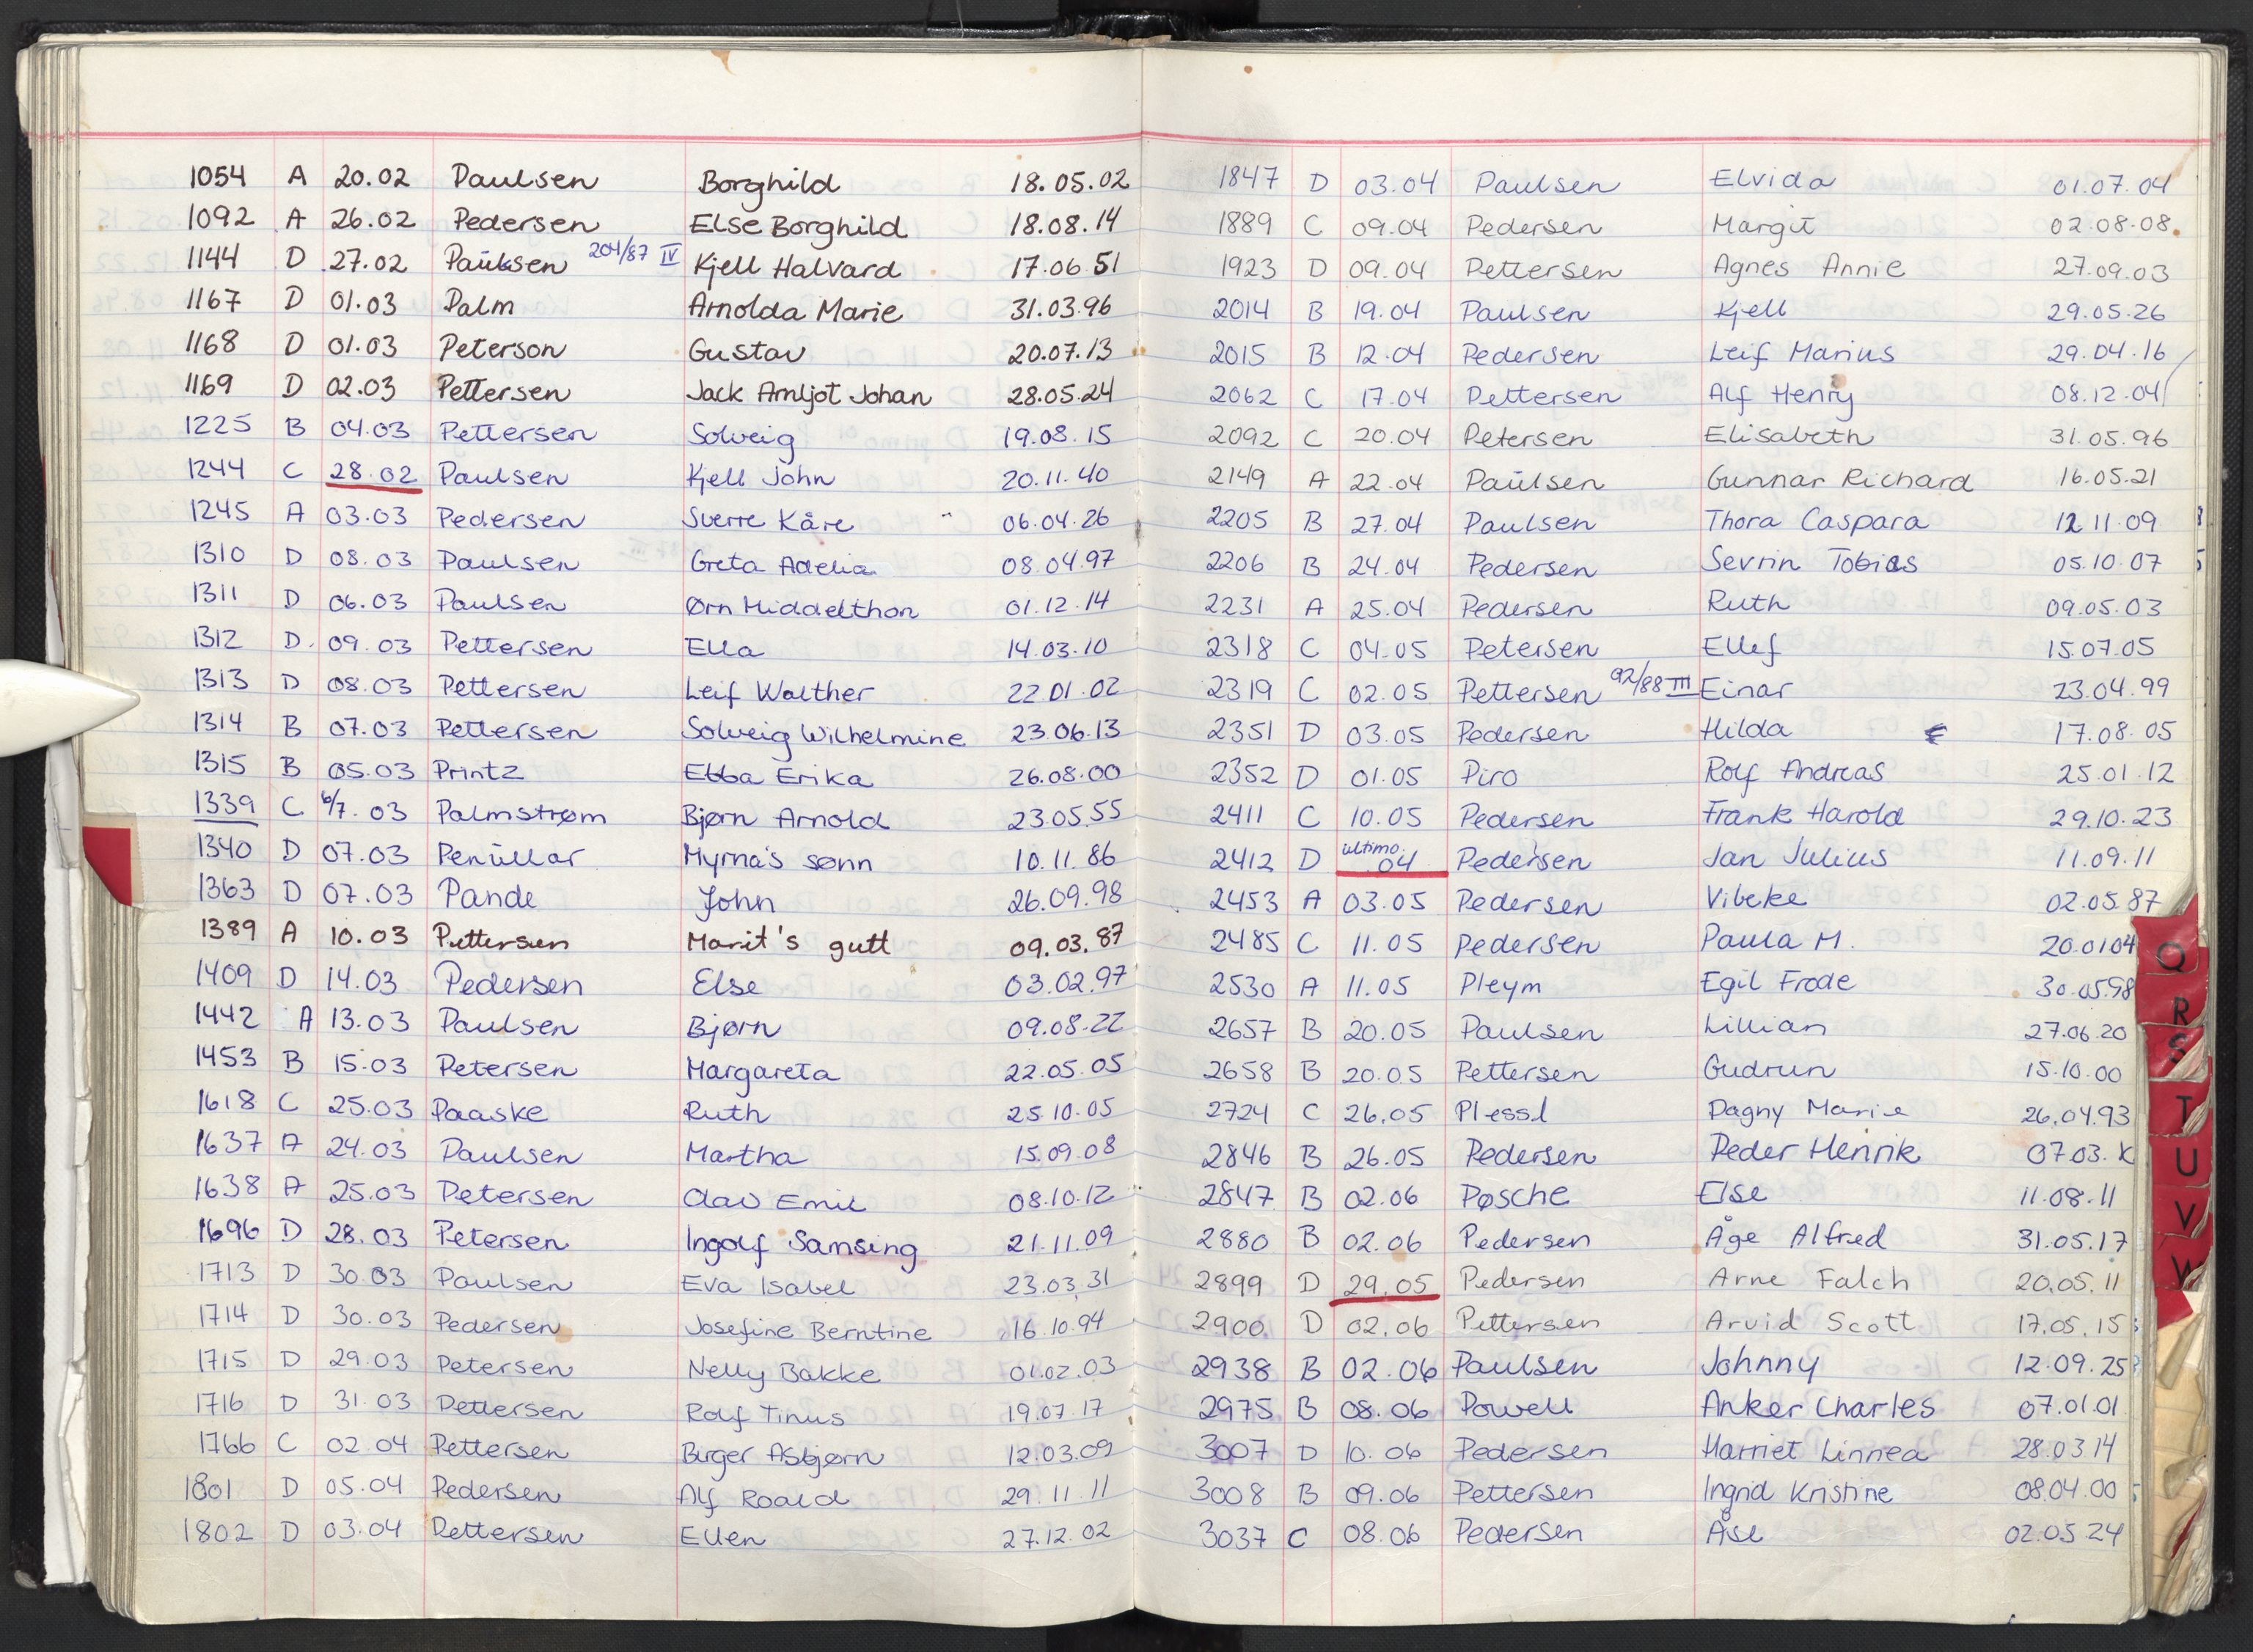 1054 A 20.02 Paulsen Borghild 18.05.02
1092 A 26.02 Pedersen Else Borghild 18.08.14
1144 D 27.02 Paulsen 204/87 IV Kjell Halvard 17.06.51
1167 D 01.03 Palm Arnolda Marie 31.03.96
1168 D 01.03 Peterson Gustav 20.07.13
1169 D 02.03 Pettersen Jack Arnljot Johan 28.05.24
1225 B 04.03 Pettersen Solveig 19.08.15
1244 C 28.02 Paulsen Kjell John 20.11.40
1245 A 03.03 Pedersen Sverre Kåre 06.04.26
1310 D 08.03 Paulsen Greta Adelia 08.04.97
1311 D 06.03 Paulsen Ørn Middelthon 01.12.14
1312 D. 09.03 Pettersen Ella 14.03.10
1313 D 08.03 Pettersen Leif Walther 22.01.02
1314 B 07.03 Pettersen Solveig Wilhelmine 23.06.13
1315 B 05.03 Printz Ebba Erika 26.08.00
1339 C 6/7.03 Palmstrøm Bjørn Arnold 23.05.55
1340 D 07.03 Penullar Myrna's sønn 10.11.86
1363 D 07.03 Pande John 26.09.98
1389 A 10.03 Pettersen Marit's gutt 09.03.87
1409 D 14.03 Pedersen Else 03.02.97
1442 A 13.03 Paulsen Bjørn 09.08.22
1453 B 15.03 Petersen Margareta 22.05.05
1618 C 25.03 Paaske Ruth 25.10.05
1637 A 24.03 Paulsen Martha 15.09.08
1638 A 25.03 Petersen Olav Emil 08.10.12
1696 D 28.03 Petersen Ingolf Samsing 21.11.09
1713 D 30.03 Paulsen Eva Isabel 23.03.31
1714 D 30.03 Pedersen Josefine Berntine 16.10.94
1715 D 29.03 Petersen Nelly Bakke 01.02.03
1716 D 31.03 Pettersen Rolf Tinus 19.07.17
1766 C 02.04 Pettersen Birger Asbjørn 12.03.09
1801 D 05.04 Pedersen Alf Roald 29.11.11
1802 D 03.04 Pettersen Ellen 27.12.02
1847 D 03.04 Paulsen Elvida 01.07.04
1889 C 09.04 Pedersen Margit 02.08.08.
1923 D 09.04 Pettersen Agnes Annie 27.09.03
2014 B 19.04 Paulsen Kjell 29.05.26
2015 B 12.04 Pedersen Leif Marius 29.04.16
2062 C 17.04 Pettersen Alf Henry 08.12.04
2092 C 20.04 Petersen Elisabeth 31.05.96
2149 A 22.04 Paulsen Gunnar Richard 16.05.21
2205 B 27.04 Paulsen Thora Caspara 12.11.09
2206 B 24.04 Pedersen Sevrin Tobias 05.10.07
2231 A 25.04 Pedersen Ruth 09.05.03
2318 C 04.05 Petersen Ellef 15.07.05
2319 C 02.05 Pettersen 92/88 III Einar 23.04.99
2351 D 03.05 Pedersen Hilda 17.08.05
2352 D 01.05 Piro Rolf Andreas 25.01.12
2411 C 10.05 Pedersen Frank Harold 29.10.23
2412 D ultimo.04 Pedersen Jan Julius 11.09.11
2453 A 03.05 Pedersen Vibeke 02.05.87
2485 C 11.05 Pedersen Paula M. 20.01.04
2530 A 11.05 Pleym Egil Frode 30.05.98
2657 B 20.05 Paulsen Lillian 27.06.20
2658 B 20.05 Pettersen Gudrun 15.10.00
2724 C 26.05 Plessl Dagny Marie 26.04.93
2846 B 26.05 Pedersen Peder Henrik 07.03.
2847 B 02.06 Pøsche Else 11.08.11
2880 B 02.06 Pedersen Åge Alfred 31.05.17
2899 D 29.05 Pedersen Arne Falch 20.05.11
2900 D 02.06 Pettersen Arvid Scott 17.05.15
2938 B 02.06 Paulsen Johnny 12.09.25
2975 B 08.06 Powell Anker Charles 07.01.01
3007 D 10.06 Pedersen Harriet Linnea 28.03.14
3008 B 09.06 Pettersen Ingrid Kristine 08.04.00
3037 C 08.06 Pedersen Åse 02.05.24
Q
R
S
T
U
V
W